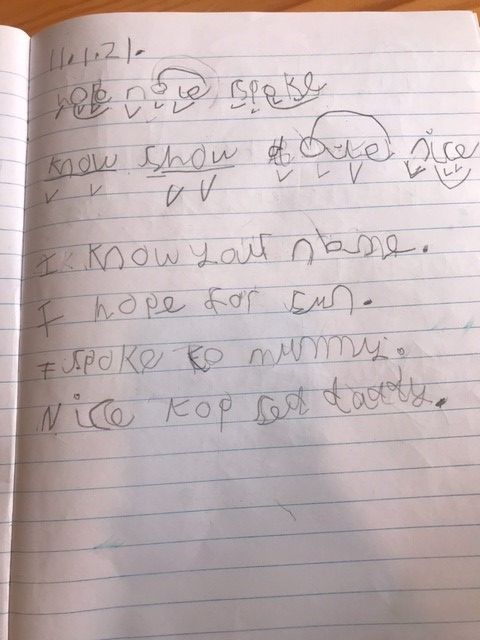 11.1.21.
hope spoke
know show nice
I know your name.
I hope for sun.
I spoke to mummy.
Nice kop sed daddy.